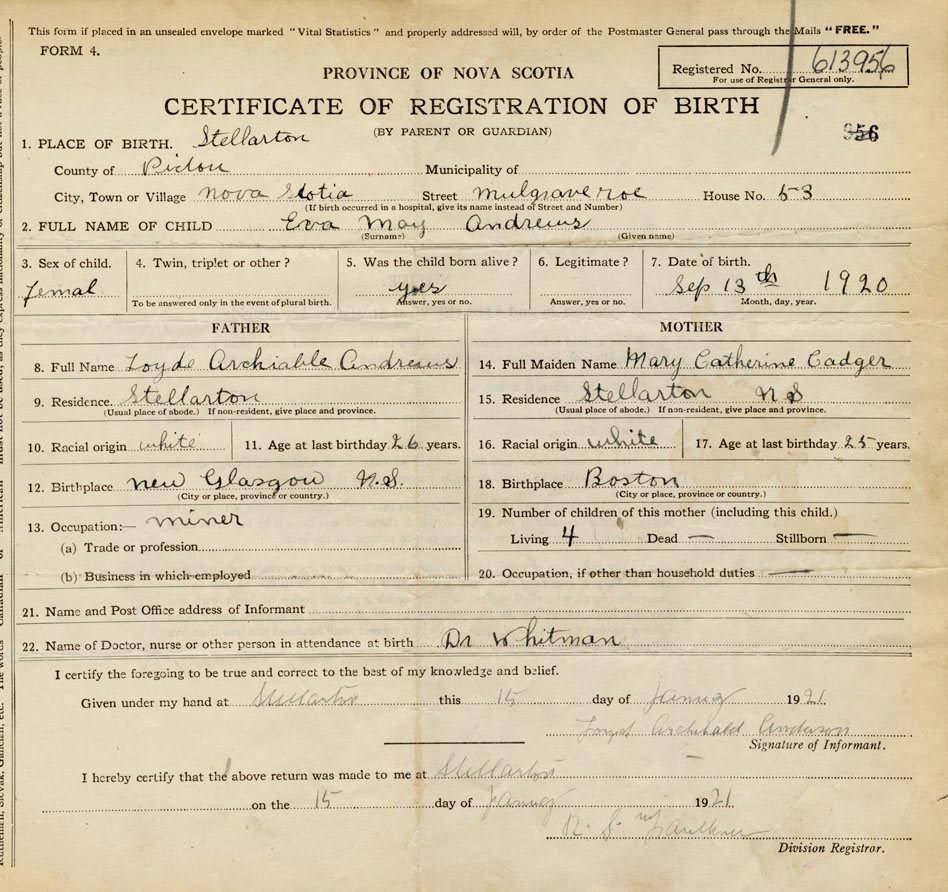 This form if placed in an unsealed envelope marked "Vital Statistics" and properly addressed will, by order of the Postmaster General pass through the Mails "FREE."
FORM 4.
Registered No. 613956
For use of Registrar General only.
PROVINCE OF NOVA SCOTIA
CERTIFICATE OF REGISTRATION OF BIRTH
(BY PARENT OR GUARDIAN)
956
1. PLACE OF BIRTH. Stellarton
County of Pictou Municipality of
City, Town or Village Nova Scotia Street Mulgrave roe House No. 53
(If birth occurred in a hospital, give its name instead of Street and Number)
2. FULL NAME OF CHILD Eva May Andrews
(Surname) (Given name)
3. Sex of child. 4. Twin, triplet or other? 5. Was the child born alive? 6. Legitimate? 7. Date of birth.
femal yes Sep 13th 1920
To be answered only in the event of plural birth. Answer, yes or no. Answer, yes or no. Month, day, year.
FATHER MOTHER
8. Full Name Loyde Archiable Andrews
14. Full Maiden Name Mary Catherine Cadger
9. Residence. Stellarton
15. Residence Stellarton N S
(Usual place of abode.) If non-resident, give place and province.
(Usual place of abode.) If non-resident, give place and province.
10. Racial origin white 11. Age at last birthday 26 years.
16. Racial origin white 17. Age at last birthday 25 years.
12. Birthplace new Glasgow N.S.
(City or place, province or country.)
18. Birthplace Boston
(City or place, province or country.)
13. Occupation:— miner
(a) Trade or profession
(b) Business in which employed
19. Number of children of this mother (including this child.)
Living 4 Dead — Stillborn —
20. Occupation, if other than household duties —
21. Name and Post Office address of Informant
22. Name of Doctor, nurse or other person in attendance at birth Dr Whitman
I certify the foregoing to be true and correct to the best of my knowledge and belief.
Given under my hand at Stellarton this 15 day of 1921.
Archibald Anderson
Signature of Informant.
I hereby certify that the above return was made to me at Stellarton
on the 15 day of 1921.
R. S. Faulkner
Division Registrar.